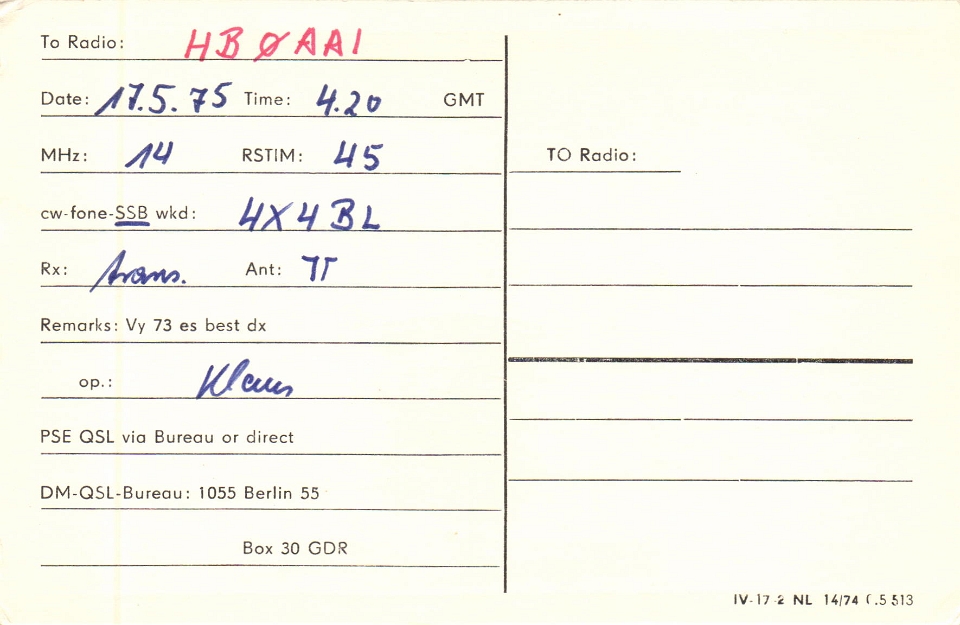 To Radio: HBØAAI
Date: 17.5.75 Time: 4.20 GMT
MHz: 14 RSTIM: 45
cw-fone-SSB wkd: 4X4BL
Rx: trans. Ant:
Remarks: Vy 73 es best dx
op.: Klaus
PSE QSL via Bureau or direct
DM-QSL-Bureau: 1055 Berlin 55
Box 30 GDR
TO Radio:
IV-17-2 NL 14/74